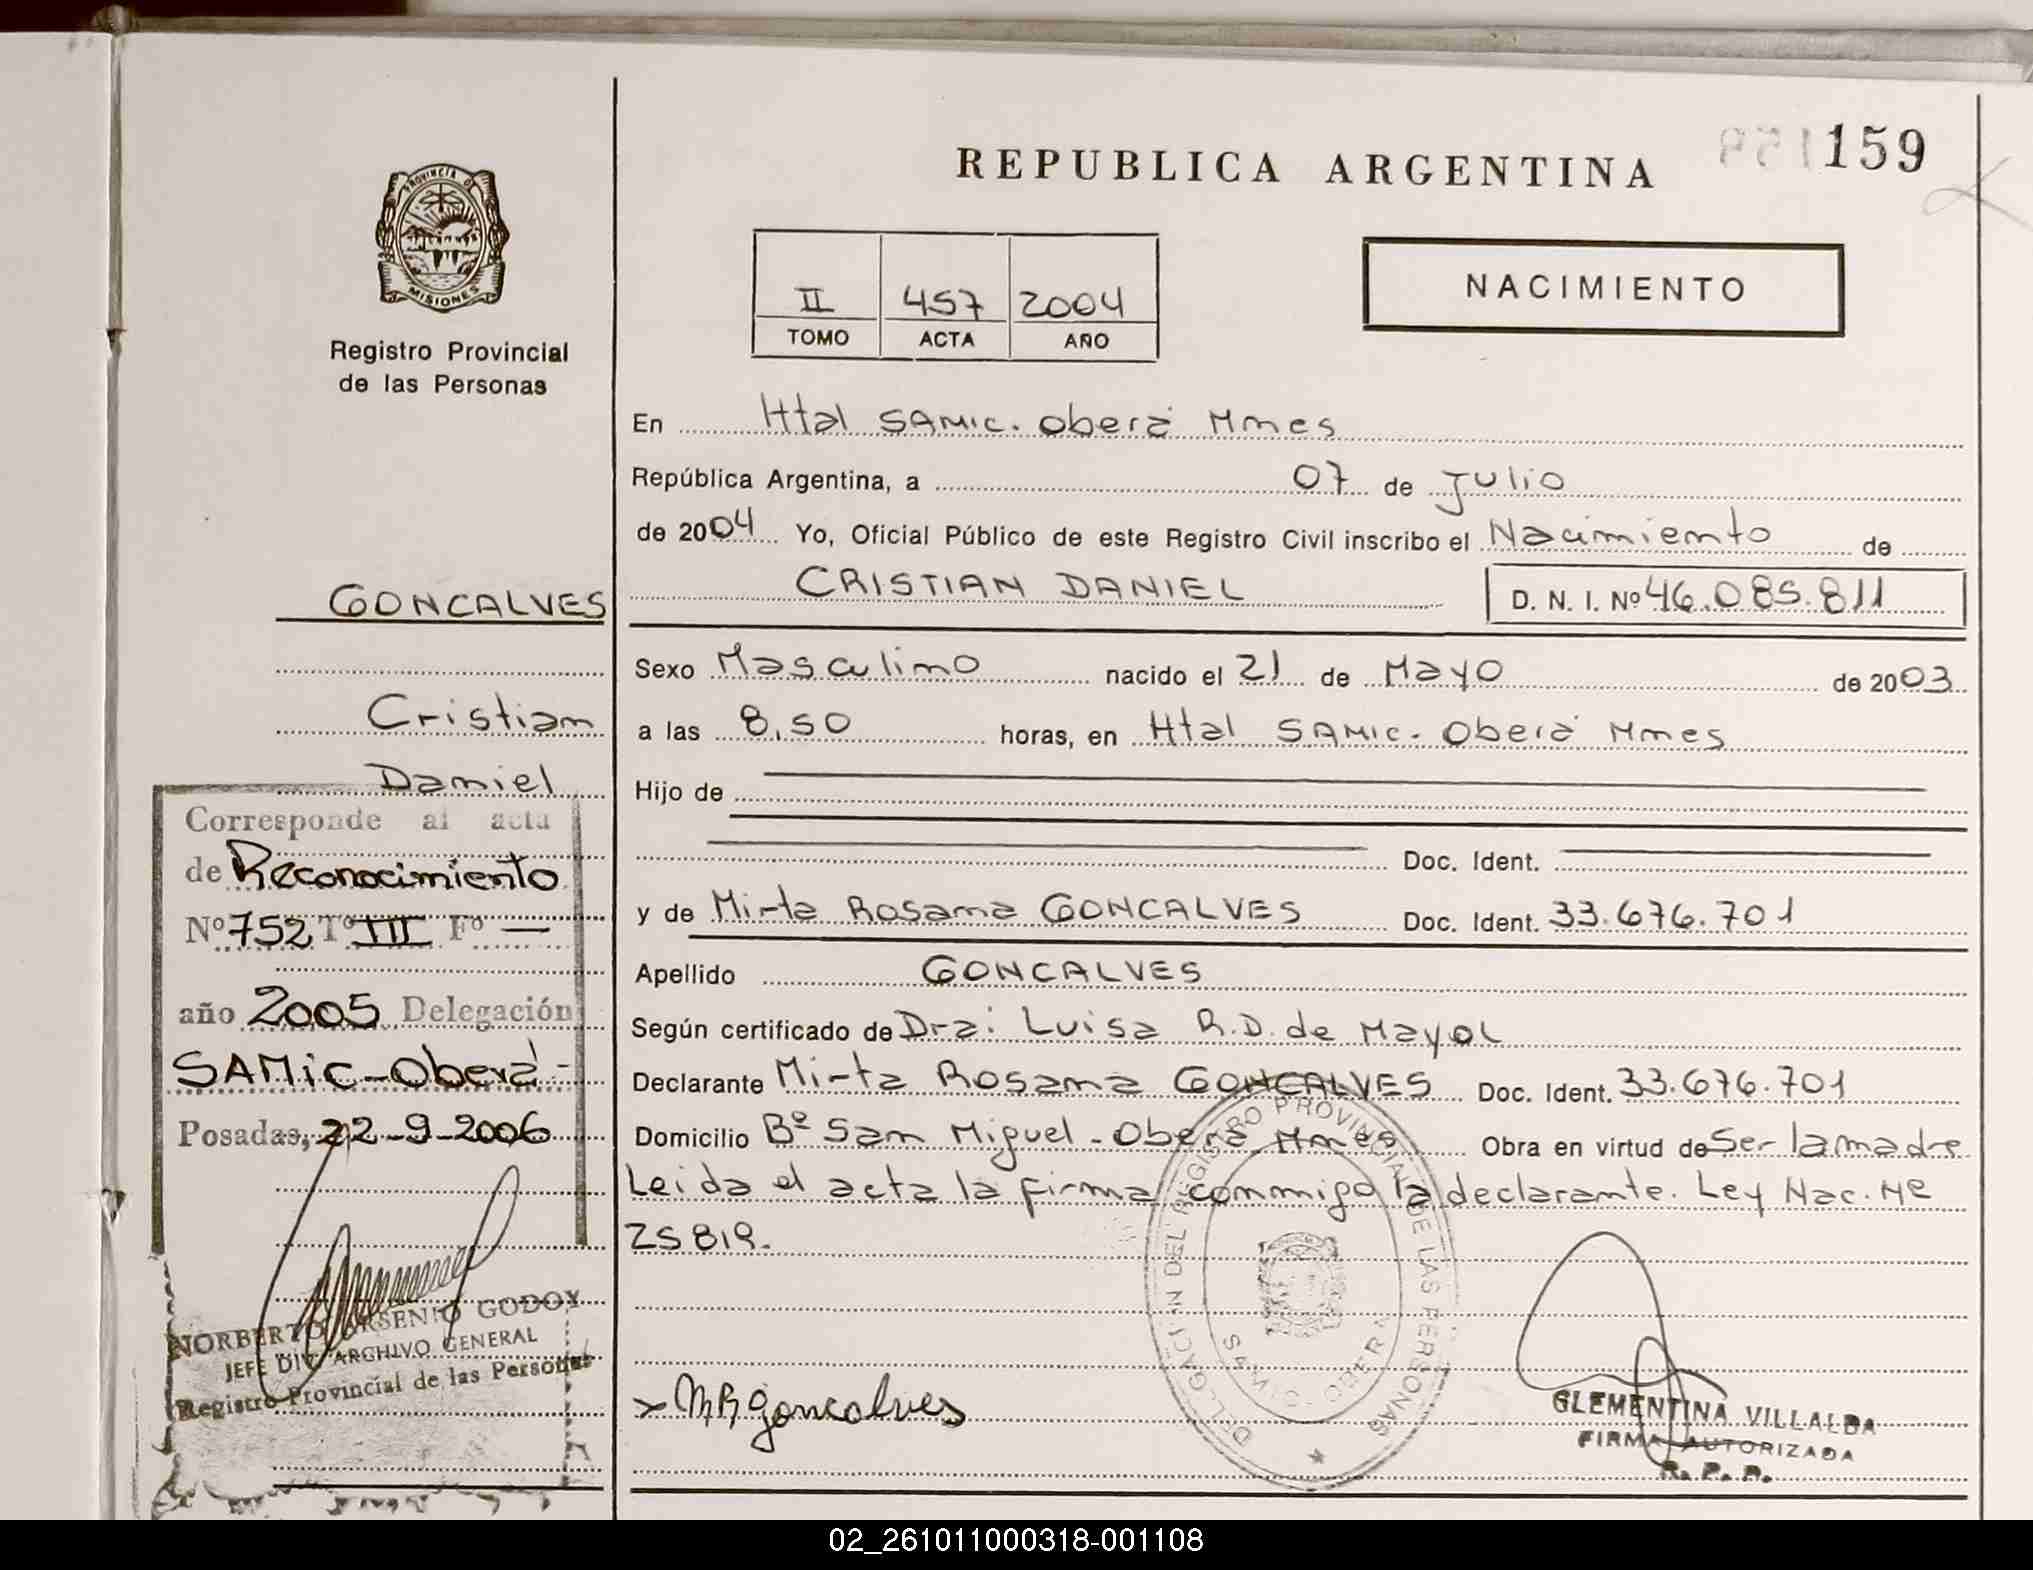 REPUBLICA ARGENTINA
159
PROVINCIA DE
MISIONES
Registro Provincial
de las Personas
II 457 2004
TOMO ACTA AÑO
NACIMIENTO
En Htal SAMIC. Oberá Mnes
República Argentina, a 07 de Julio
de 2004 Yo, Oficial Público de este Registro Civil inscribo el Nacimiento de
CRISTIAN DANIEL D. N. I. Nº 46.085.811
Sexo Masculino nacido el 21 de Mayo de 2003
a las 8,50 horas, en Htal SAMIC. Oberá Mnes
Hijo de
Doc. Ident.
y de Mirta Rosana GONCALVES Doc. Ident. 33.676.701
Apellido GONCALVES
Según certificado de Dra: Luisa R.D. de Mayol
Declarante Mirta Rosana GONCALVES Doc. Ident. 33.676.701
Domicilio Bº San Miguel - Oberá Mnes Obra en virtud de Ser la madre
Leida el acta la firma conmigo la declarante. Ley Nac. Nº
25819.
GONCALVES
Cristian
Daniel
Corresponde al acta
de Reconocimiento
Nº 752 Tº III Fº —
año 2005 Delegación
SAMIC-Oberá-
Posadas, 22-9-2006
NORBERTO ARSENIO GODOY
JEFE DIV. ARCHIVO GENERAL
Registro Provincial de las Personas
x MRGoncalves
DELEGACION DEL REGISTRO PROVINCIAL DE LAS PERSONAS
CLEMENTINA VILLALBA
FIRMA AUTORIZADA
R. P. P.
02_261011000318-001108